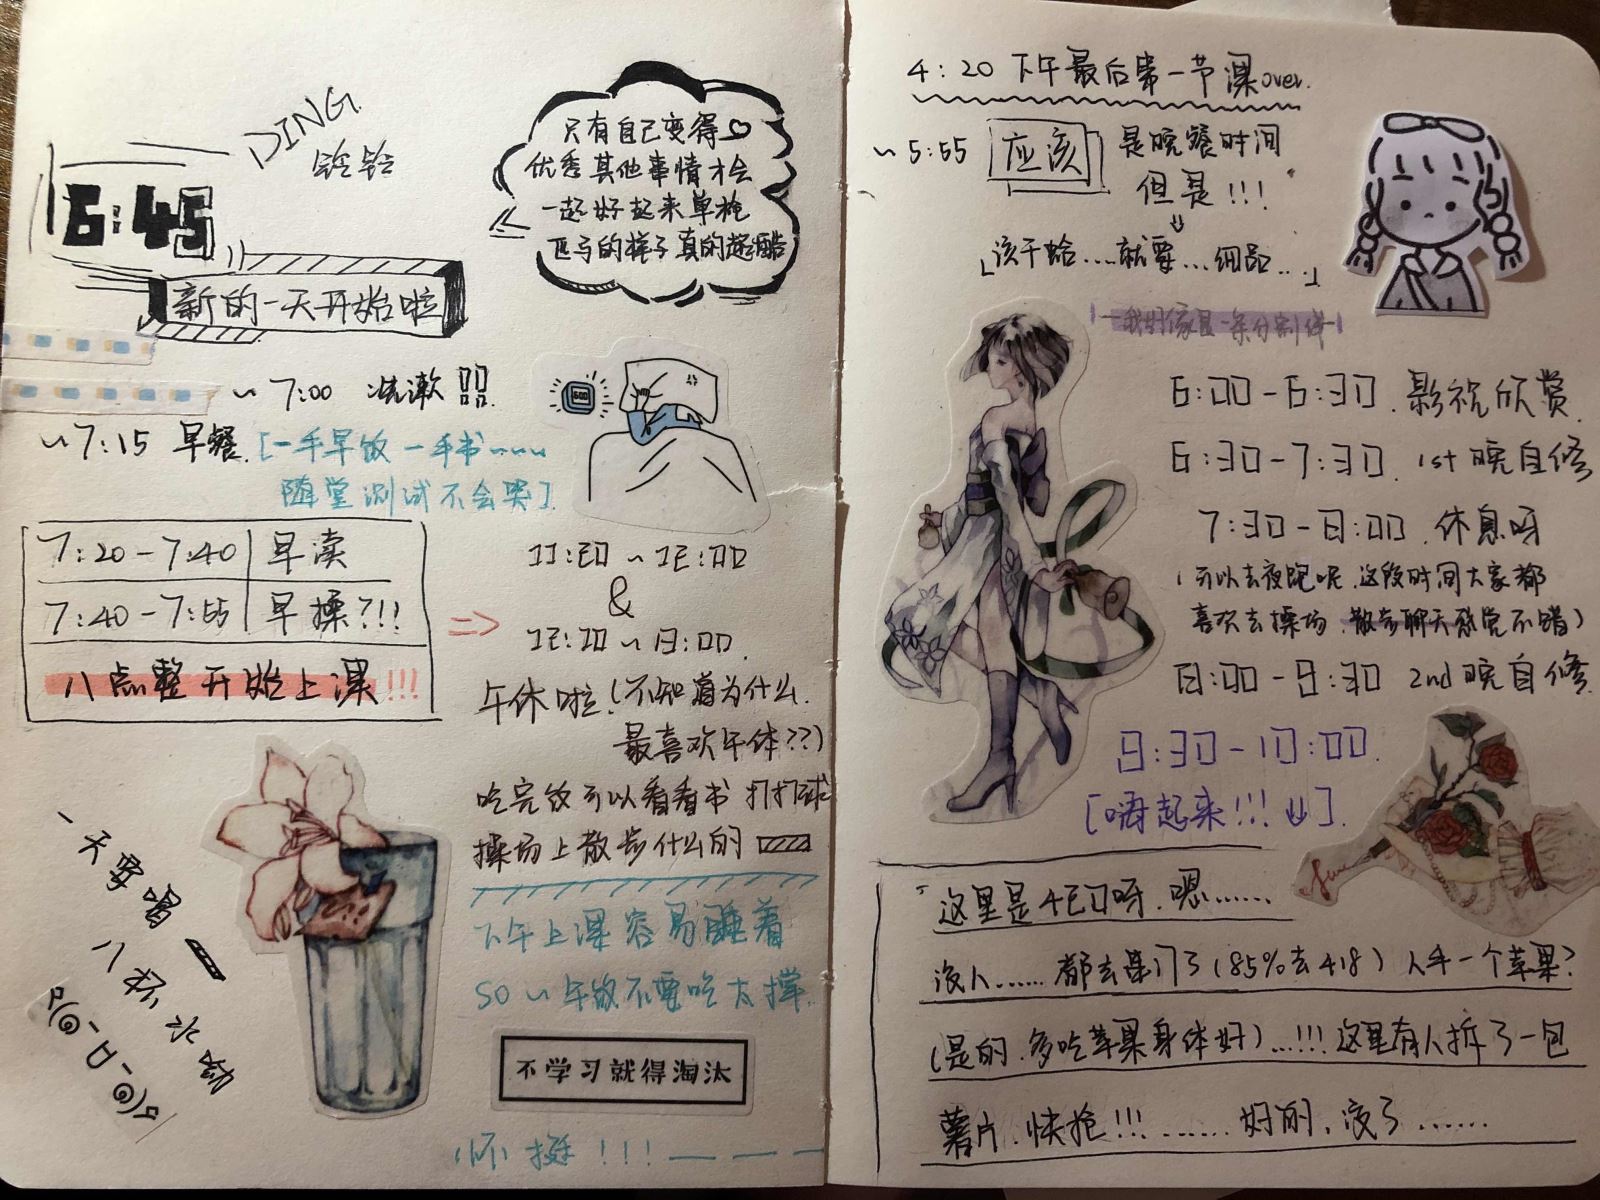 DING
铃铃
6:45
新的一天开始啦
只有自己变得
优秀其他事情才会
一起好起来单枪
匹马的样子真的超酷
~7:00 洗漱!!!
~7:15 早餐.[一手早饭一手书~~~
随堂测试不会哭]
7:20-7:40 早读
7:40-7:55 早操?!!
八点整开始上课!!!
11:20~12:00
&
12:20~13:00.
午休啦!(不知道为什么.
最喜欢午休??)
吃完饭可以看看书 打打球
操场上散步什么的
下午上课容易睡着
so~午饭不要吃太撑.
不学习就得淘汰
!!!
一天要喝
八杯水
4:20 下午最后第一节课over.
~5:55 应该 是晚餐时间
但是!!!
「该干饭....就要...细品...」
我好像是一条分割线
6:00-6:30.影视欣赏.
6:30-7:30. 1st晚自修
7:30-8:00.休息呀
(可以去夜跑呢.这段时间大家都
喜欢去操场.散步聊天感觉不错)
8:00-9:30 2nd晚自修.
9:30-10:00.
[嗨起来!!!↓].
这里是421呀.嗯......
没人......都去串门了(85%去418)人手一个苹果?
(是的.多吃苹果身体好)...!!!这里有人拆了一包
薯片.快抢!!!......好的.没了......